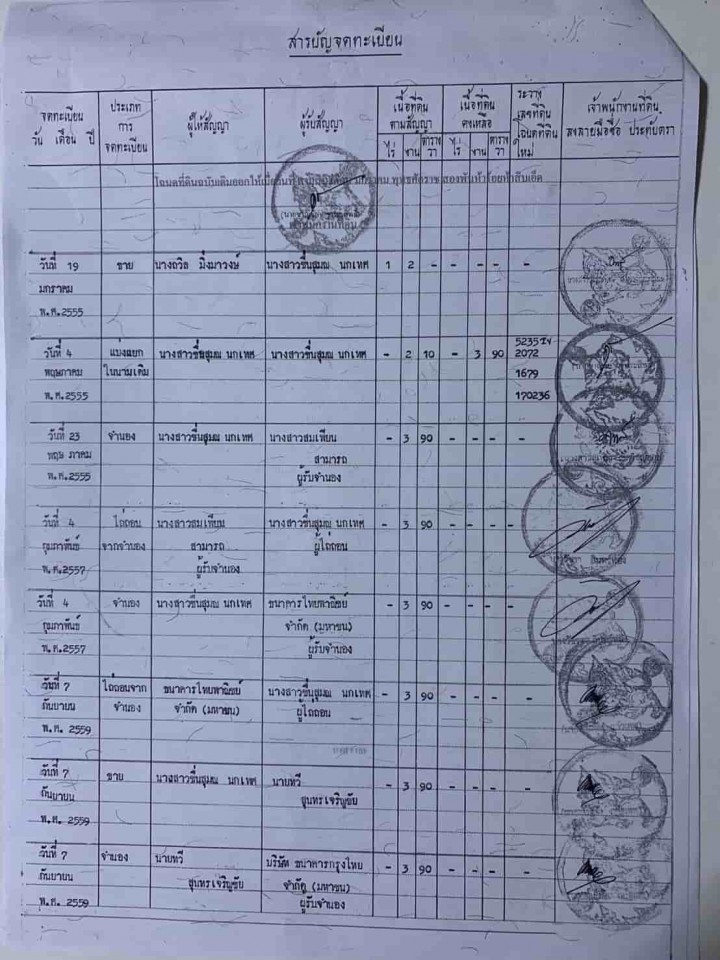 สารบัญจดทะเบียน
จดทะเบียน วัน เดือน ปี
ประเภท การ จดทะเบียน
ผู้ให้สัญญา
ผู้รับสัญญา
เนื้อที่ดิน ตามสัญญา
ไร่ งาน ตารางวา
เนื้อที่ดิน คงเหลือ
ไร่ งาน ตารางวา
ระวาง เลขที่ดิน โฉนดที่ดิน ใหม่
เจ้าพนักงานที่ดิน ลงลายมือชื่อ ประทับตรา
โฉนดที่ดินฉบับเดิมออกให้เมื่อวันที่ พุทธศักราช สองพันห้าร้อยห้าสิบเอ็ด
เจ้าพนักงานที่ดิน
วันที่ 19 ขาย นางถวิล มิ่งมาวงษ์ นางสาวชื่นสุมณ นกเทศ 1 2 - - - - -
มกราคม
พ.ศ.2555
5235 IV
วันที่ 4 แบ่งแยก นางสาวชื่นสุมณ นกเทศ นางสาวชื่นสุมณ นกเทศ - 2 10 - 3 90 2072
พฤษภาคม ในนามเดิม 1679
พ.ศ.2555 170236
วันที่ 23 จำนอง นางสาวชื่นสุมณ นกเทศ นางสาวสมเทียน - 3 90 - - - -
พฤษภาคม สามารถ
พ.ศ.2555 ผู้รับจำนอง
วันที่ 4 ไถ่ถอน นางสาวสมเทียน นางสาวชื่นสุมณ นกเทศ - 3 90 - - - -
กุมภาพันธ์ จากจำนอง สามารถ ผู้ไถ่ถอน
พ.ศ.2557 ผู้รับจำนอง
วันที่ 4 จำนอง นางสาวชื่นสุมณ นกเทศ ธนาคารไทยพาณิชย์ - 3 90 - - - -
กุมภาพันธ์ จำกัด (มหาชน)
พ.ศ.2557 ผู้รับจำนอง
วันที่ 7 ไถ่ถอนจาก ธนาคารไทยพาณิชย์ นางสาวชื่นสุมณ นกเทศ - 3 90 - - - -
กันยายน จำนอง จำกัด (มหาชน) ผู้ไถ่ถอน
พ.ศ. 2559
วันที่ 7 ขาย นางสาวชื่นสุมณ นกเทศ นายทวี - 3 90 - - - -
กันยายน สุนทรเจริญชัย
พ.ศ. 2559
วันที่ 7 จำนอง นายทวี บริษัท ธนาคารกรุงไทย - 3 90 - - - -
กันยายน สุนทรเจริญชัย จำกัด (มหาชน)
พ.ศ. 2559 ผู้รับจำนอง